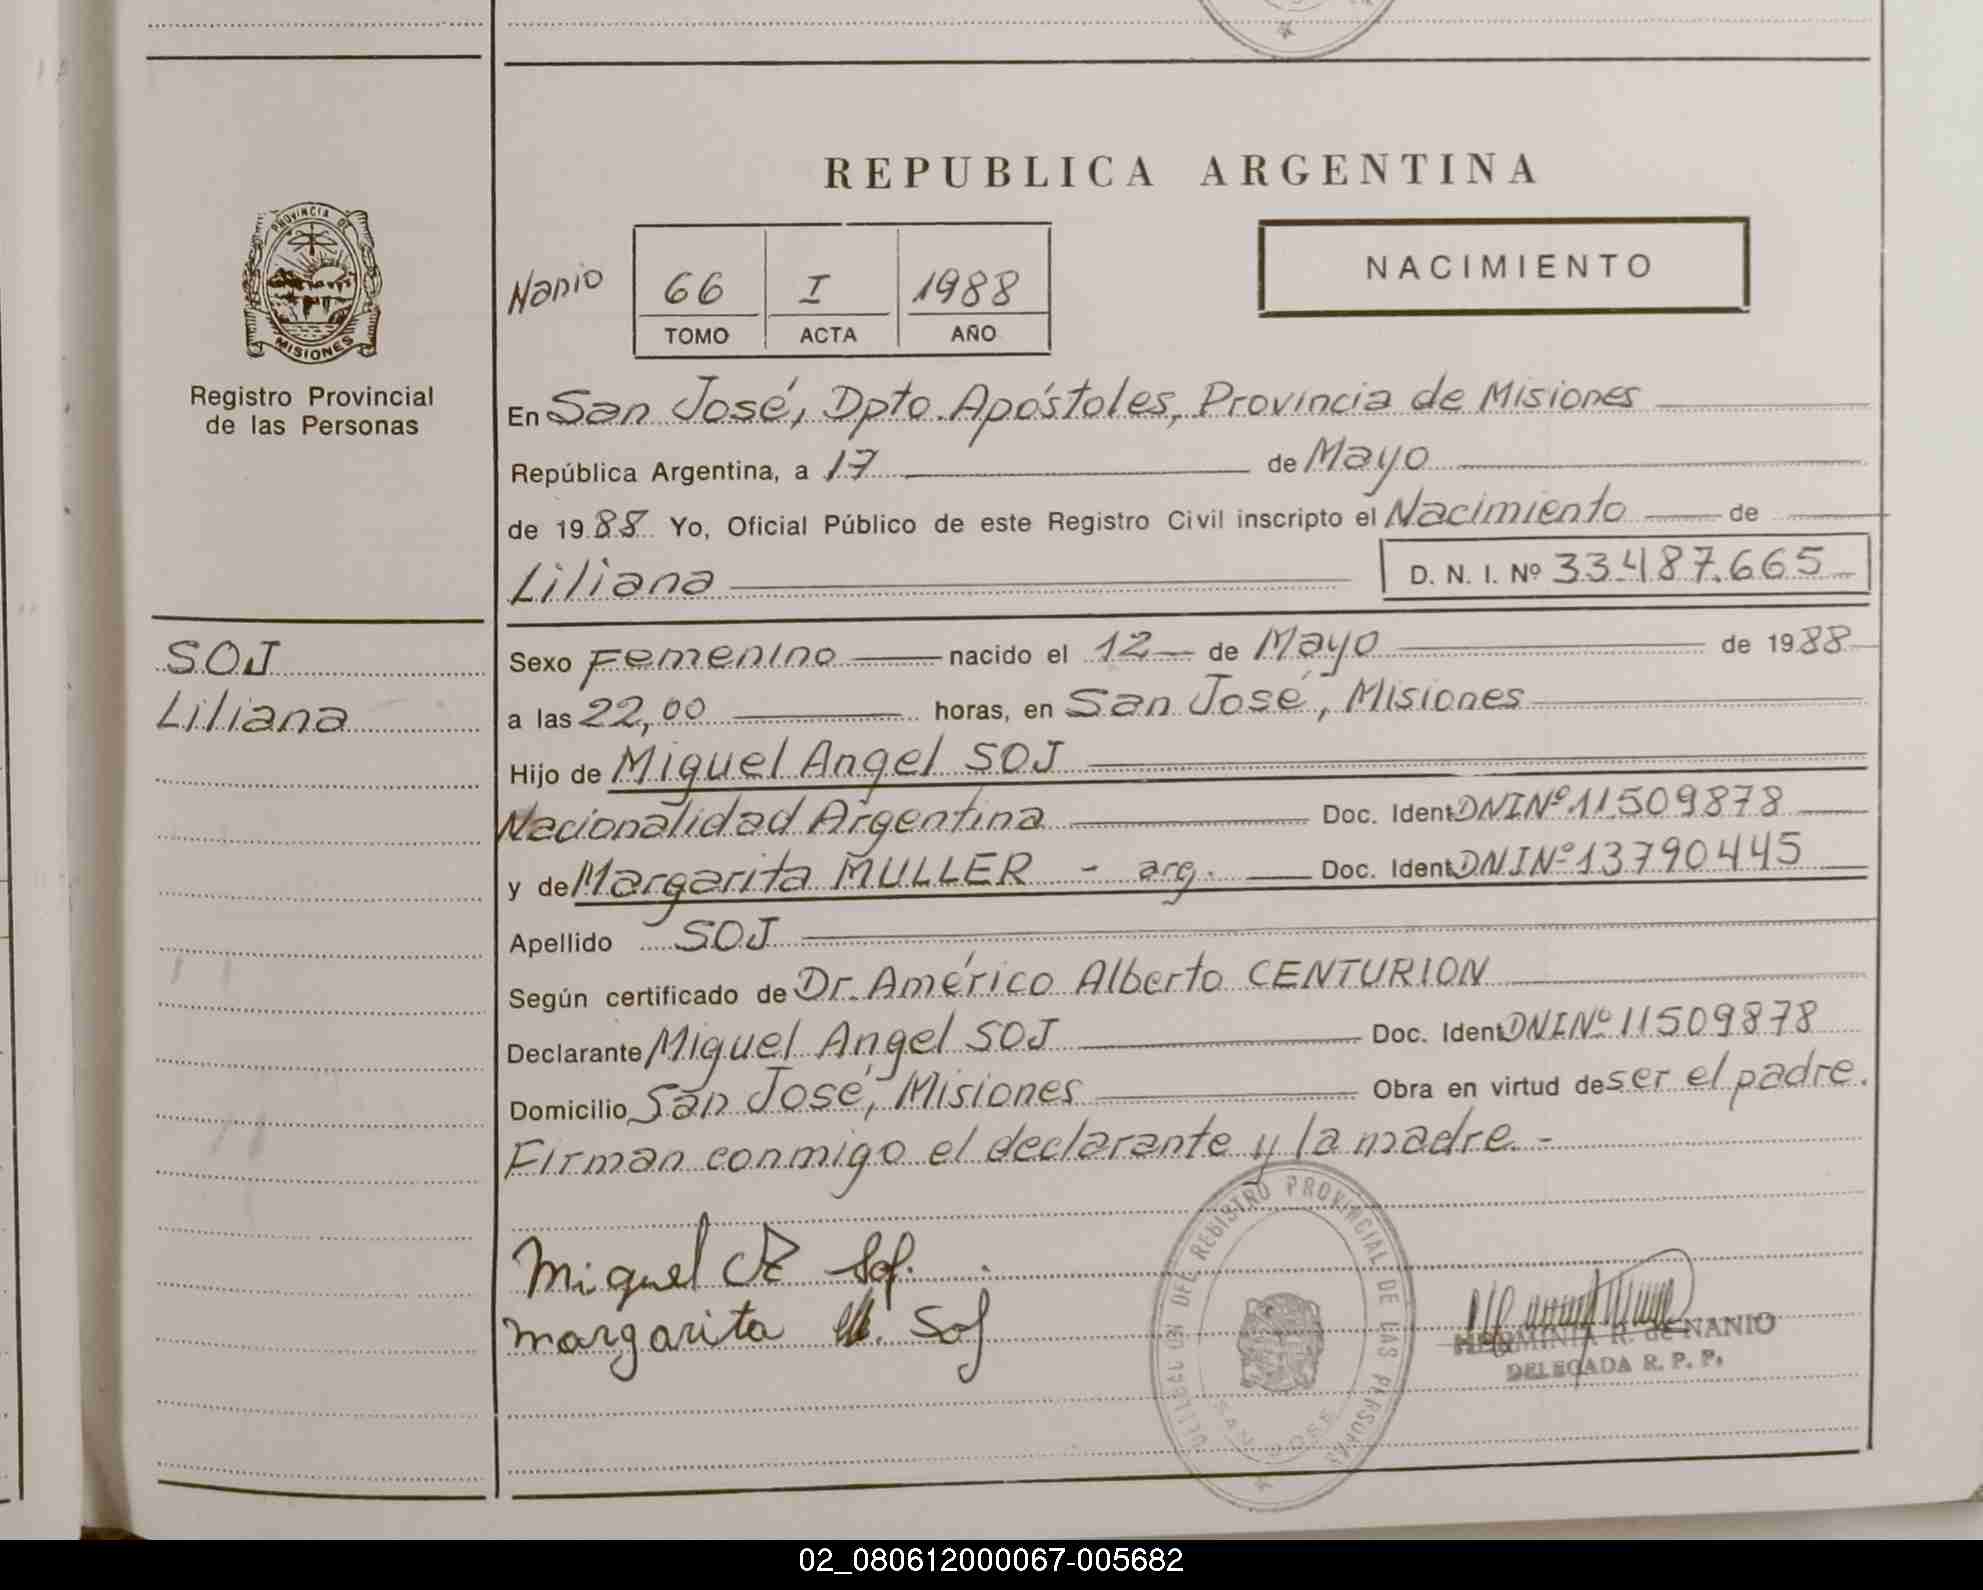 REPUBLICA ARGENTINA
PROVINCIA DE
MISIONES
Registro Provincial
de las Personas
Nanio
66 I 1988
TOMO ACTA AÑO
NACIMIENTO
En San José, Dpto. Apóstoles, Provincia de Misiones
República Argentina, a 17 de Mayo
de 1988 Yo, Oficial Público de este Registro Civil inscripto el Nacimiento de
Liliana D. N. I. Nº 33.487.665
SOJ
Liliana
Sexo Femenino nacido el 12 de Mayo de 1988
a las 22,00 horas, en San José, Misiones
Hijo de Miguel Angel SOJ
Nacionalidad Argentina Doc. Ident DNI Nº 11509878
y de Margarita MULLER - arg. Doc. Ident DNI Nº 13790445
Apellido SOJ
Según certificado de Dr. Américo Alberto CENTURION
Declarante Miguel Angel SOJ Doc. Ident DNI Nº 11509878
Domicilio San José, Misiones Obra en virtud de ser el padre.
Firman conmigo el declarante y la madre.-
Miguel Soj.
Margarita M. Soj
DEL REGISTRO PROVINCIAL DE LAS PERSONAS
SAN JOSE
HERMINIA R. de NANIO
DELEGADA R. P. P.
02_080612000067-005682